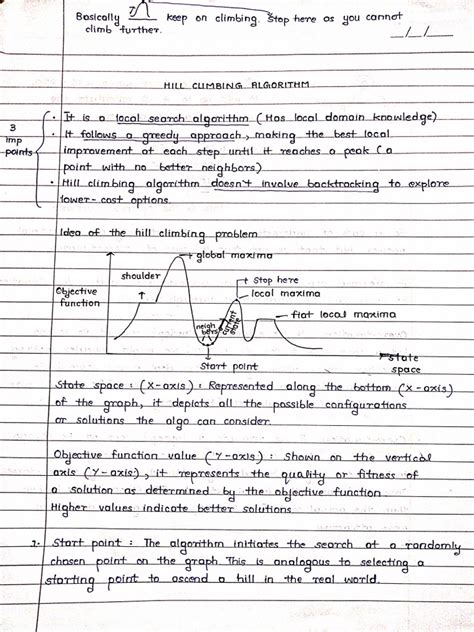 Basically keep on climbing. Stop here as you cannot
climb further.
__/__/__
HILL CLIMBING ALGORITHM
3
imp
points
• It is a local search algorithm (Has local domain knowledge)
• It follows a greedy approach, making the best local
improvement at each step until it reaches a peak (a
point with no better neighbors)
• Hill climbing algorithm doesn't involve backtracking to explore
lower-cost options.
Idea of the hill climbing problem
global maxima
shoulder
Stop here
Objective
function
local maxima
flat local maxima
neigh
bors
current
state
Start point
State
space
State space : (X-axis) : Represented along the bottom (X-axis)
of the graph, it depicts all the possible configurations
or solutions the algo can consider.
Objective function value (Y-axis) : Shown on the vertical
axis (Y-axis), it represents the quality or fitness of
a solution as determined by the objective function.
Higher values indicate better solutions
1. Start point : The algorithm initiates the search at a randomly
chosen point on the graph. This is analogous to selecting a
starting point to ascend a hill in the real world.